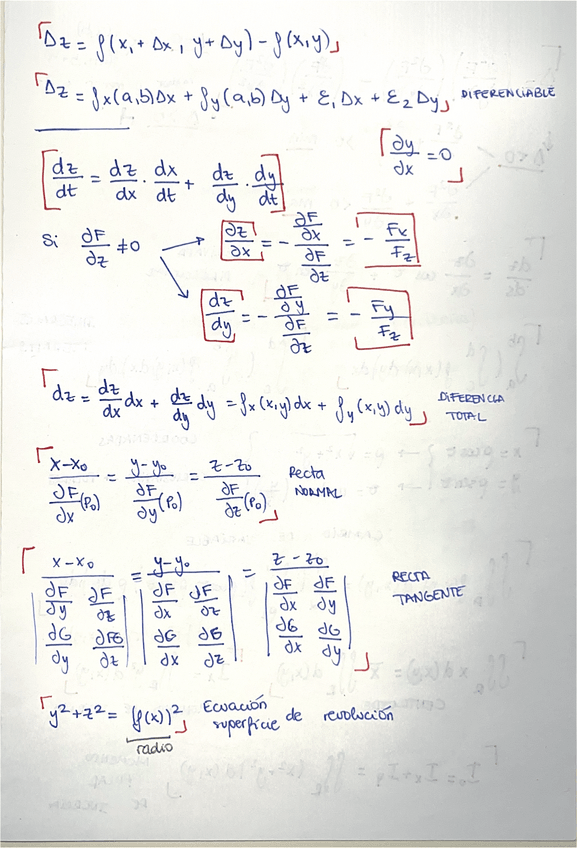 Δz = f(x, + Δx, y + Δy) - f(x,y)
Δz = fx(a,b)Δx + fy(a,b)Δy + ε₁Δx + ε₂Δy DIFERENCIABLE
dz/dt = dz/dx · dx/dt + dz/dy · dy/dt
∂y/∂x = 0
Si ∂F/∂z ≠ 0 → ∂z/∂x = - (∂F/∂x)/(∂F/∂z) = - Fx/Fz
→ dz/dy = - (∂F/∂y)/(∂F/∂z) = - Fy/Fz
dz = dz/dx dx + dz/dy dy = fx(x,y)dx + fy(x,y)dy DIFERENCIA TOTAL
(x-x₀)/(∂F/∂x (P₀)) = (y-y₀)/(∂F/∂y (P₀)) = (z-z₀)/(∂F/∂z (P₀)) Recta NORMAL
(x-x₀)/|∂F/∂y ∂F/∂z; ∂G/∂y ∂G/∂z| = (y-y₀)/|∂F/∂x ∂F/∂z; ∂G/∂x ∂G/∂z| = (z-z₀)/|∂F/∂x ∂F/∂y; ∂G/∂x ∂G/∂y| RECTA TANGENTE
y² + z² = (f(x))² Ecuación superficie de revolución
radio